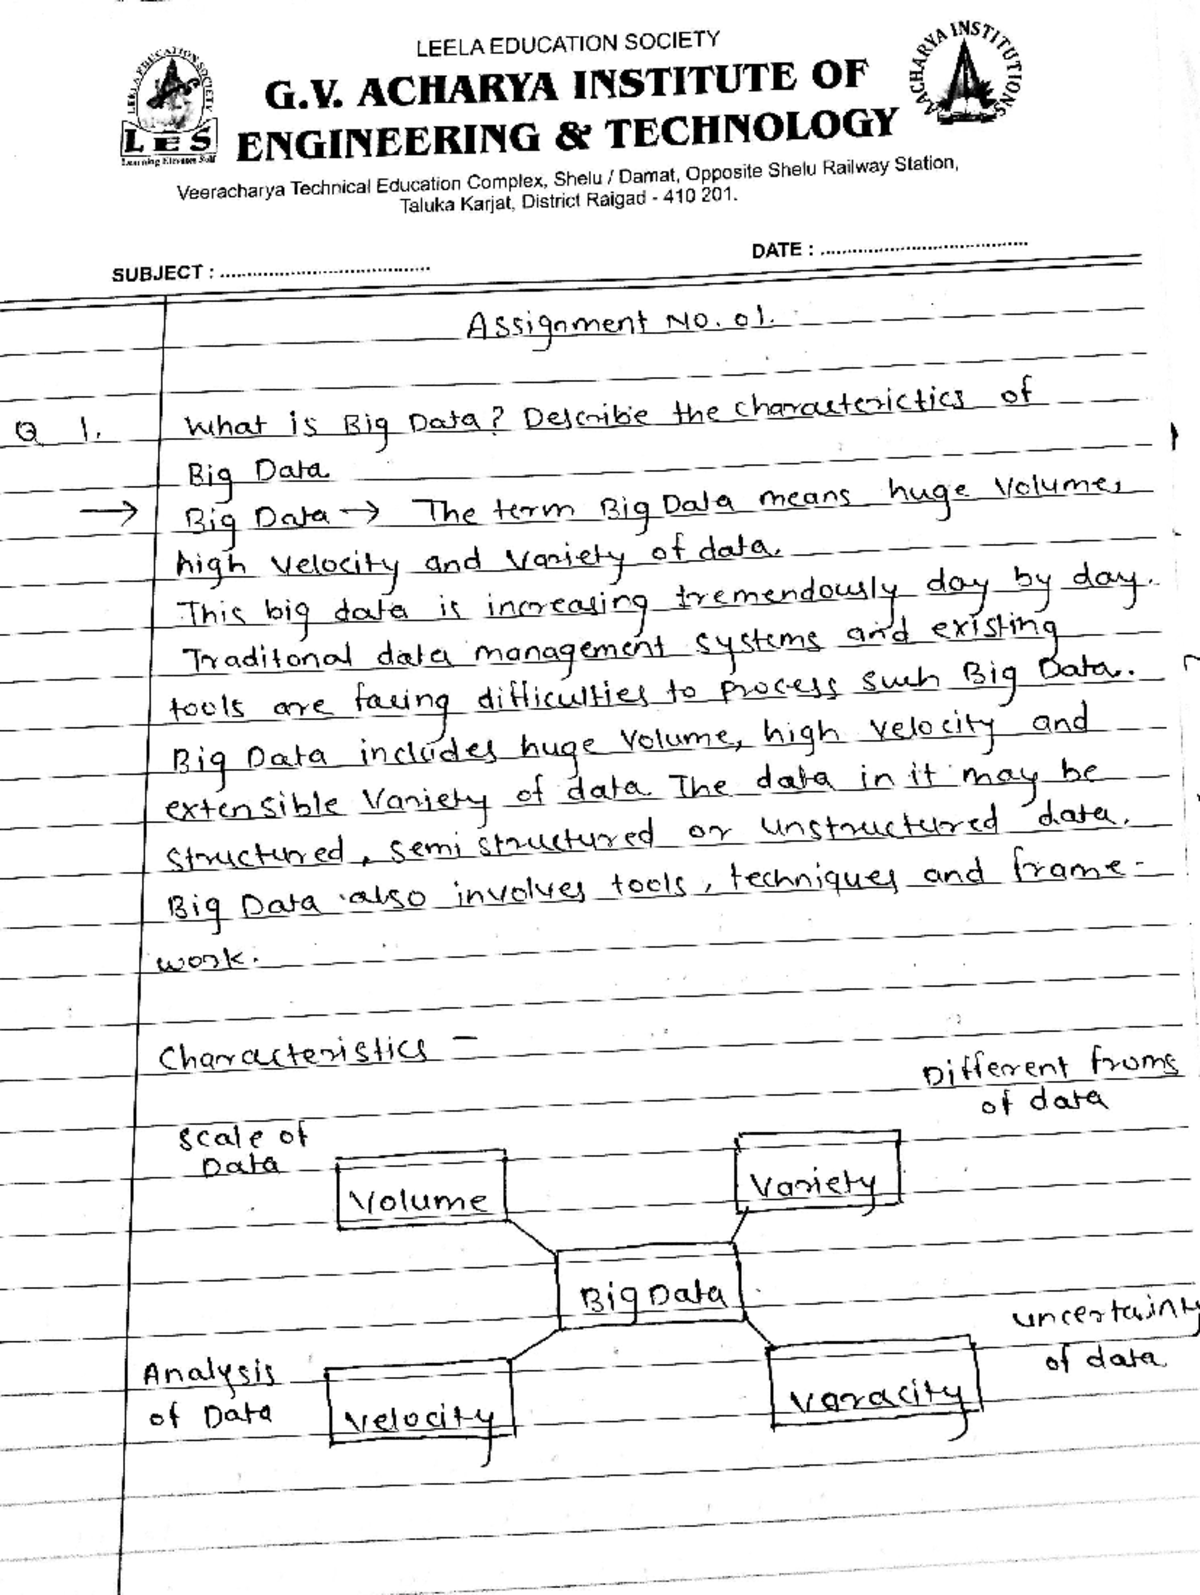 LEELA EDUCATION SOCIETY
G.V. ACHARYA INSTITUTE OF
ENGINEERING & TECHNOLOGY
Veeracharya Technical Education Complex, Shelu / Damat, Opposite Shelu Railway Station,
Taluka Karjat, District Raigad - 410 201.
LEELA EDUCATION SOCIETY
LES
Learning Elevates Self
AACHARYA INSTITUTIONS
DATE : ......................................
SUBJECT : ......................................
Assignment No. 01.
Q 1. What is Big Data? Describe the characterictics of
Big Data
→ Big Data → The term Big Data means huge Volume,
high velocity and Variety of data.
This big data is increasing tremendously day by day.
Traditonal data management systems and existing
tools are facing difficulties to process such Big Data.
Big Data includes huge Volume, high velocity and
extensible Variety of data. The data in it may be
structured, semi structured or unstructured data.
Big Data also involves tools, techniques and frame-
work.
Characteristics –
Different froms
of data
Scale of
Data
Volume
Variety
Big Data
uncertainty
of data
Analysis
of Data
Velocity
Varacity